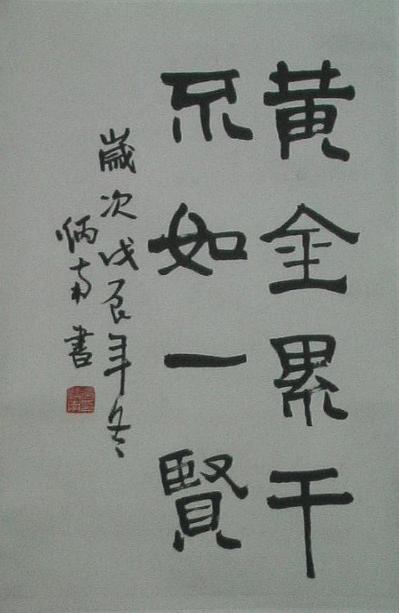 黄金累千
不如一賢
歲次戊辰年冬
炳南書